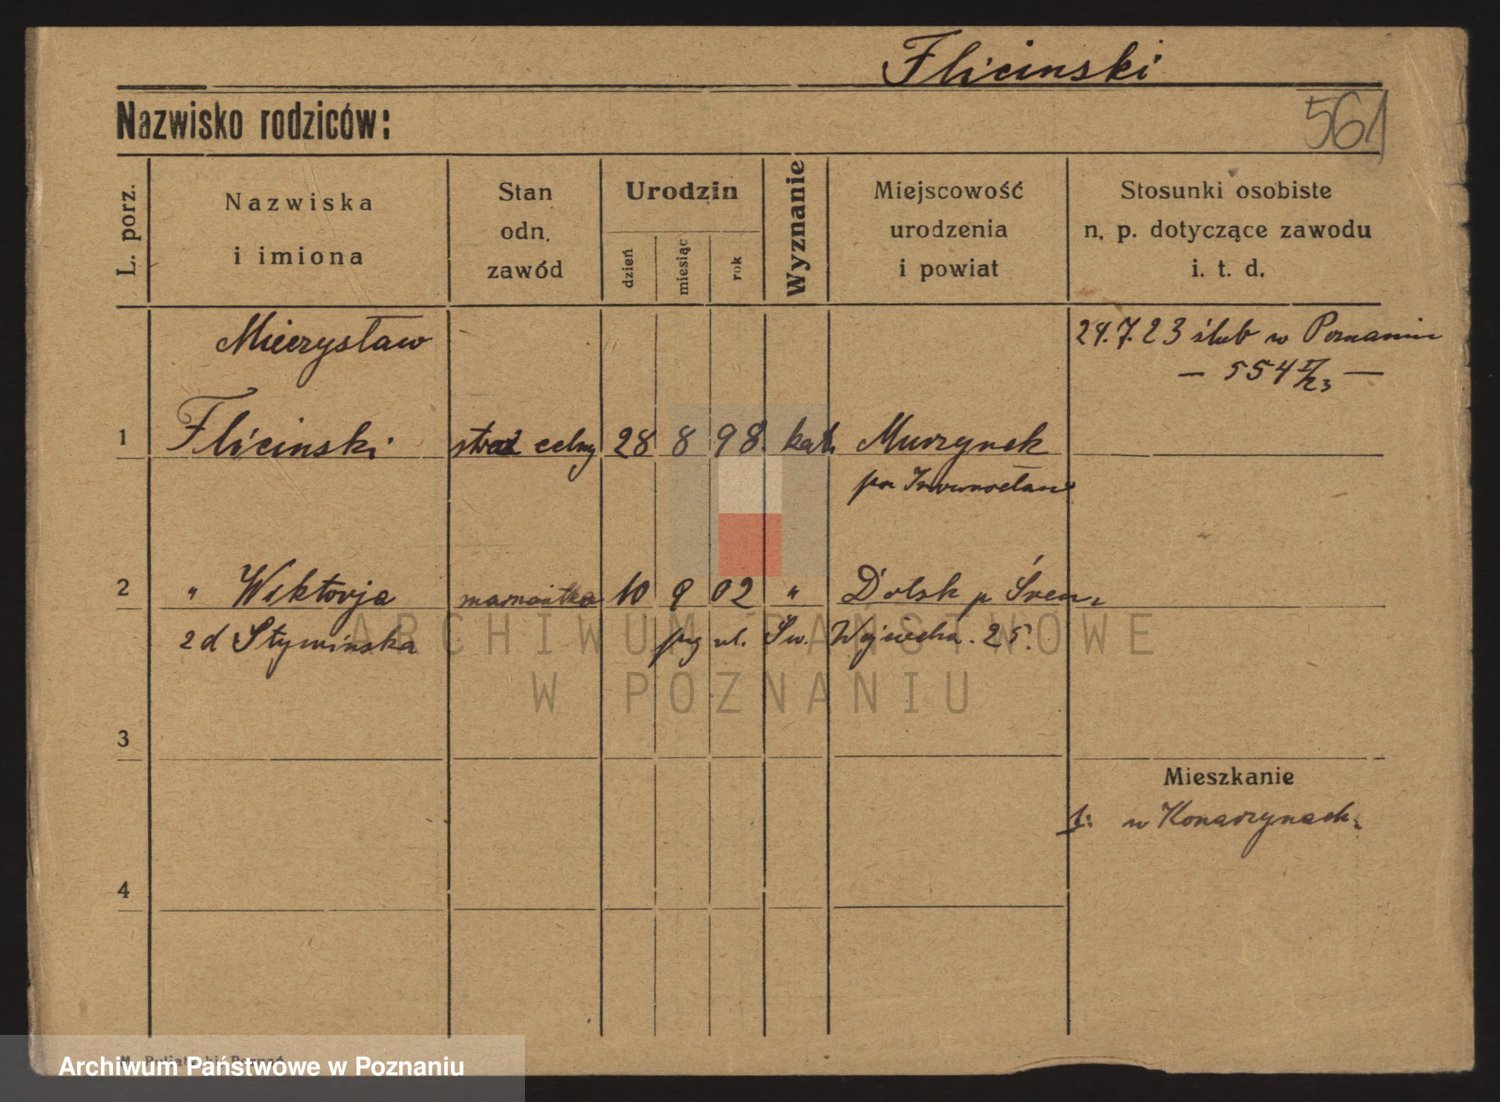 Flicinski
Nazwisko rodziców:
561
L. porz.
Nazwiska
i imiona
Stan
odn.
zawód
Urodzin
dzień
miesiąc
rok
Wyznanie
Miejscowość
urodzenia
i powiat
Stosunki osobiste
n. p. dotyczące zawodu
i. t. d.
Mieczysław
24.7.23 ślub w Poznaniu
— 554 —
1 Flicinski straż celny 28 8 98. kat. Murzynek
2 " Wiktorja mężatka 10 9 02 " Dolsk p Śrem
z d Stymińska ul. Św. Wojciecha. 25.
3
Mieszkanie
w Konarzynach
4
ARCHIWUM PAŃSTWOWE
W POZNANIU
Archiwum Państwowe w Poznaniu